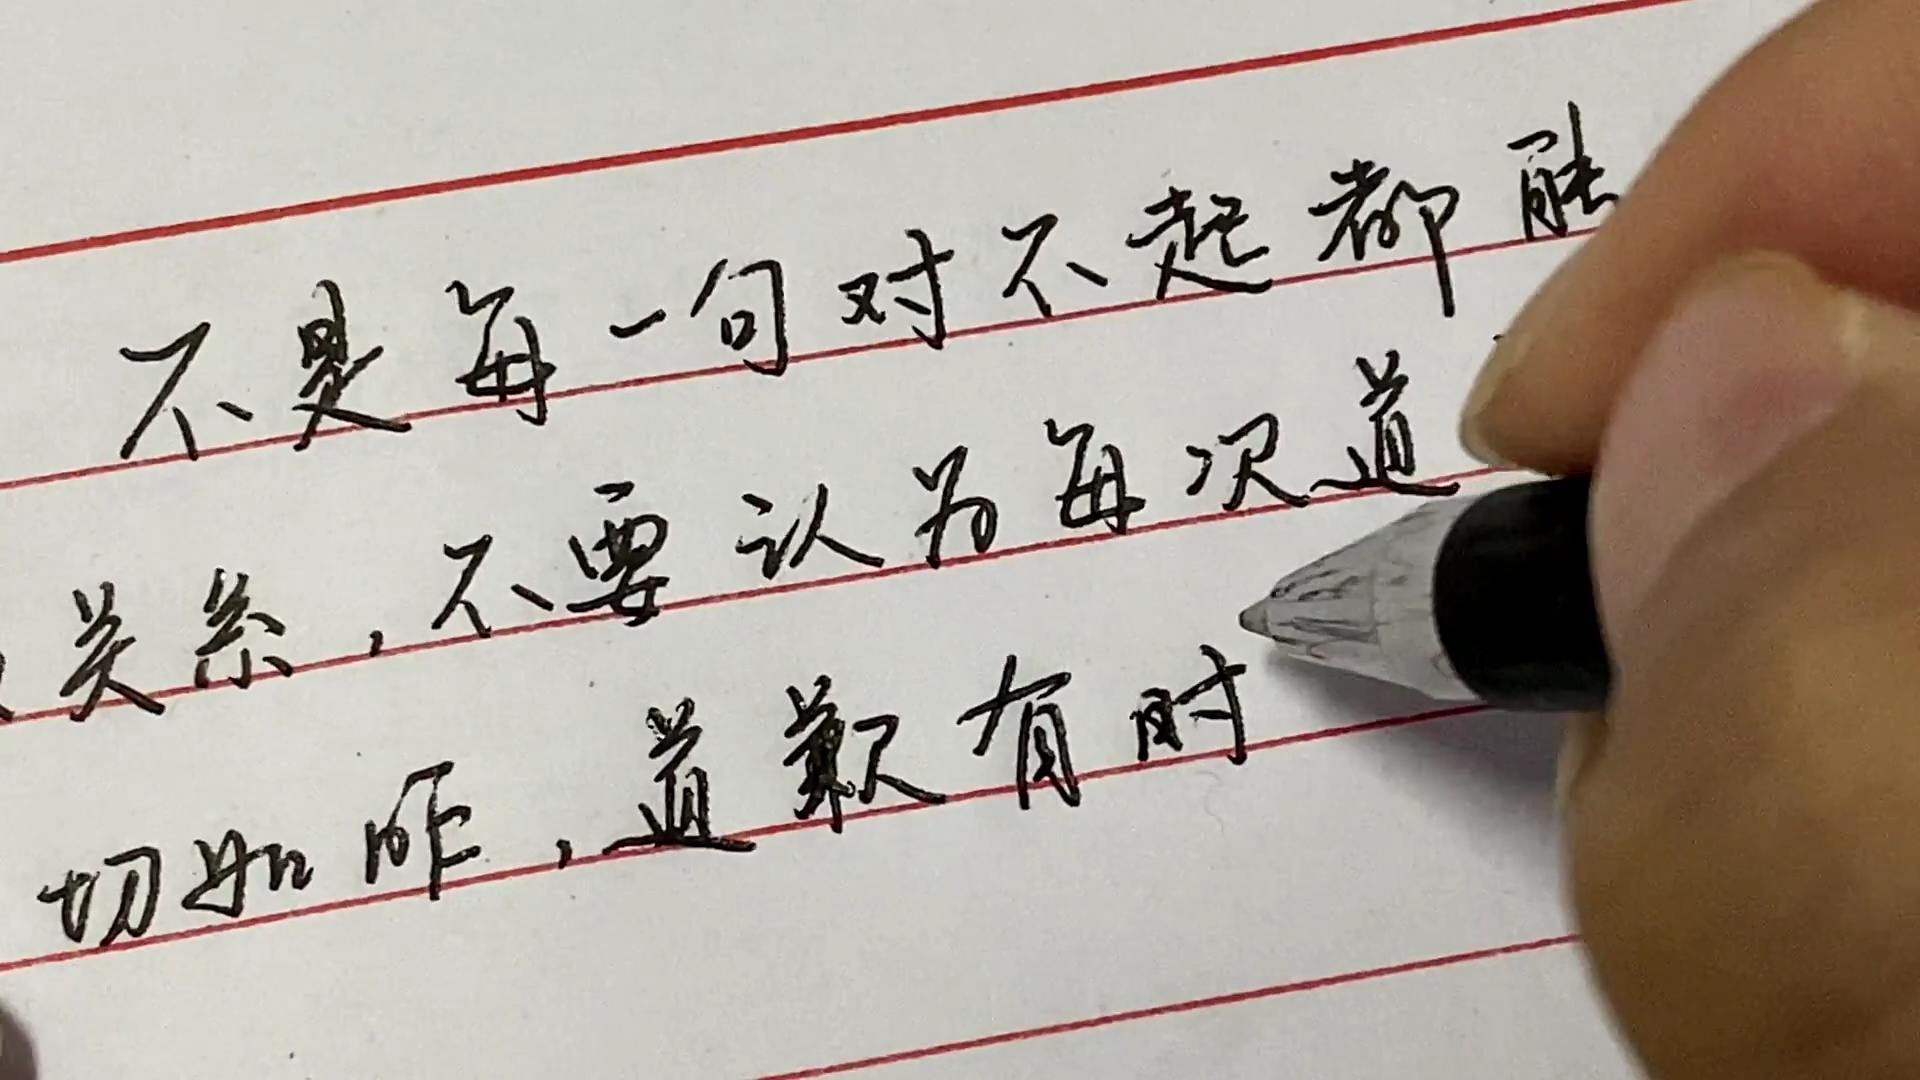 不是每一句对不起都能
关系，不要认为每次道
切如昨，道歉有时